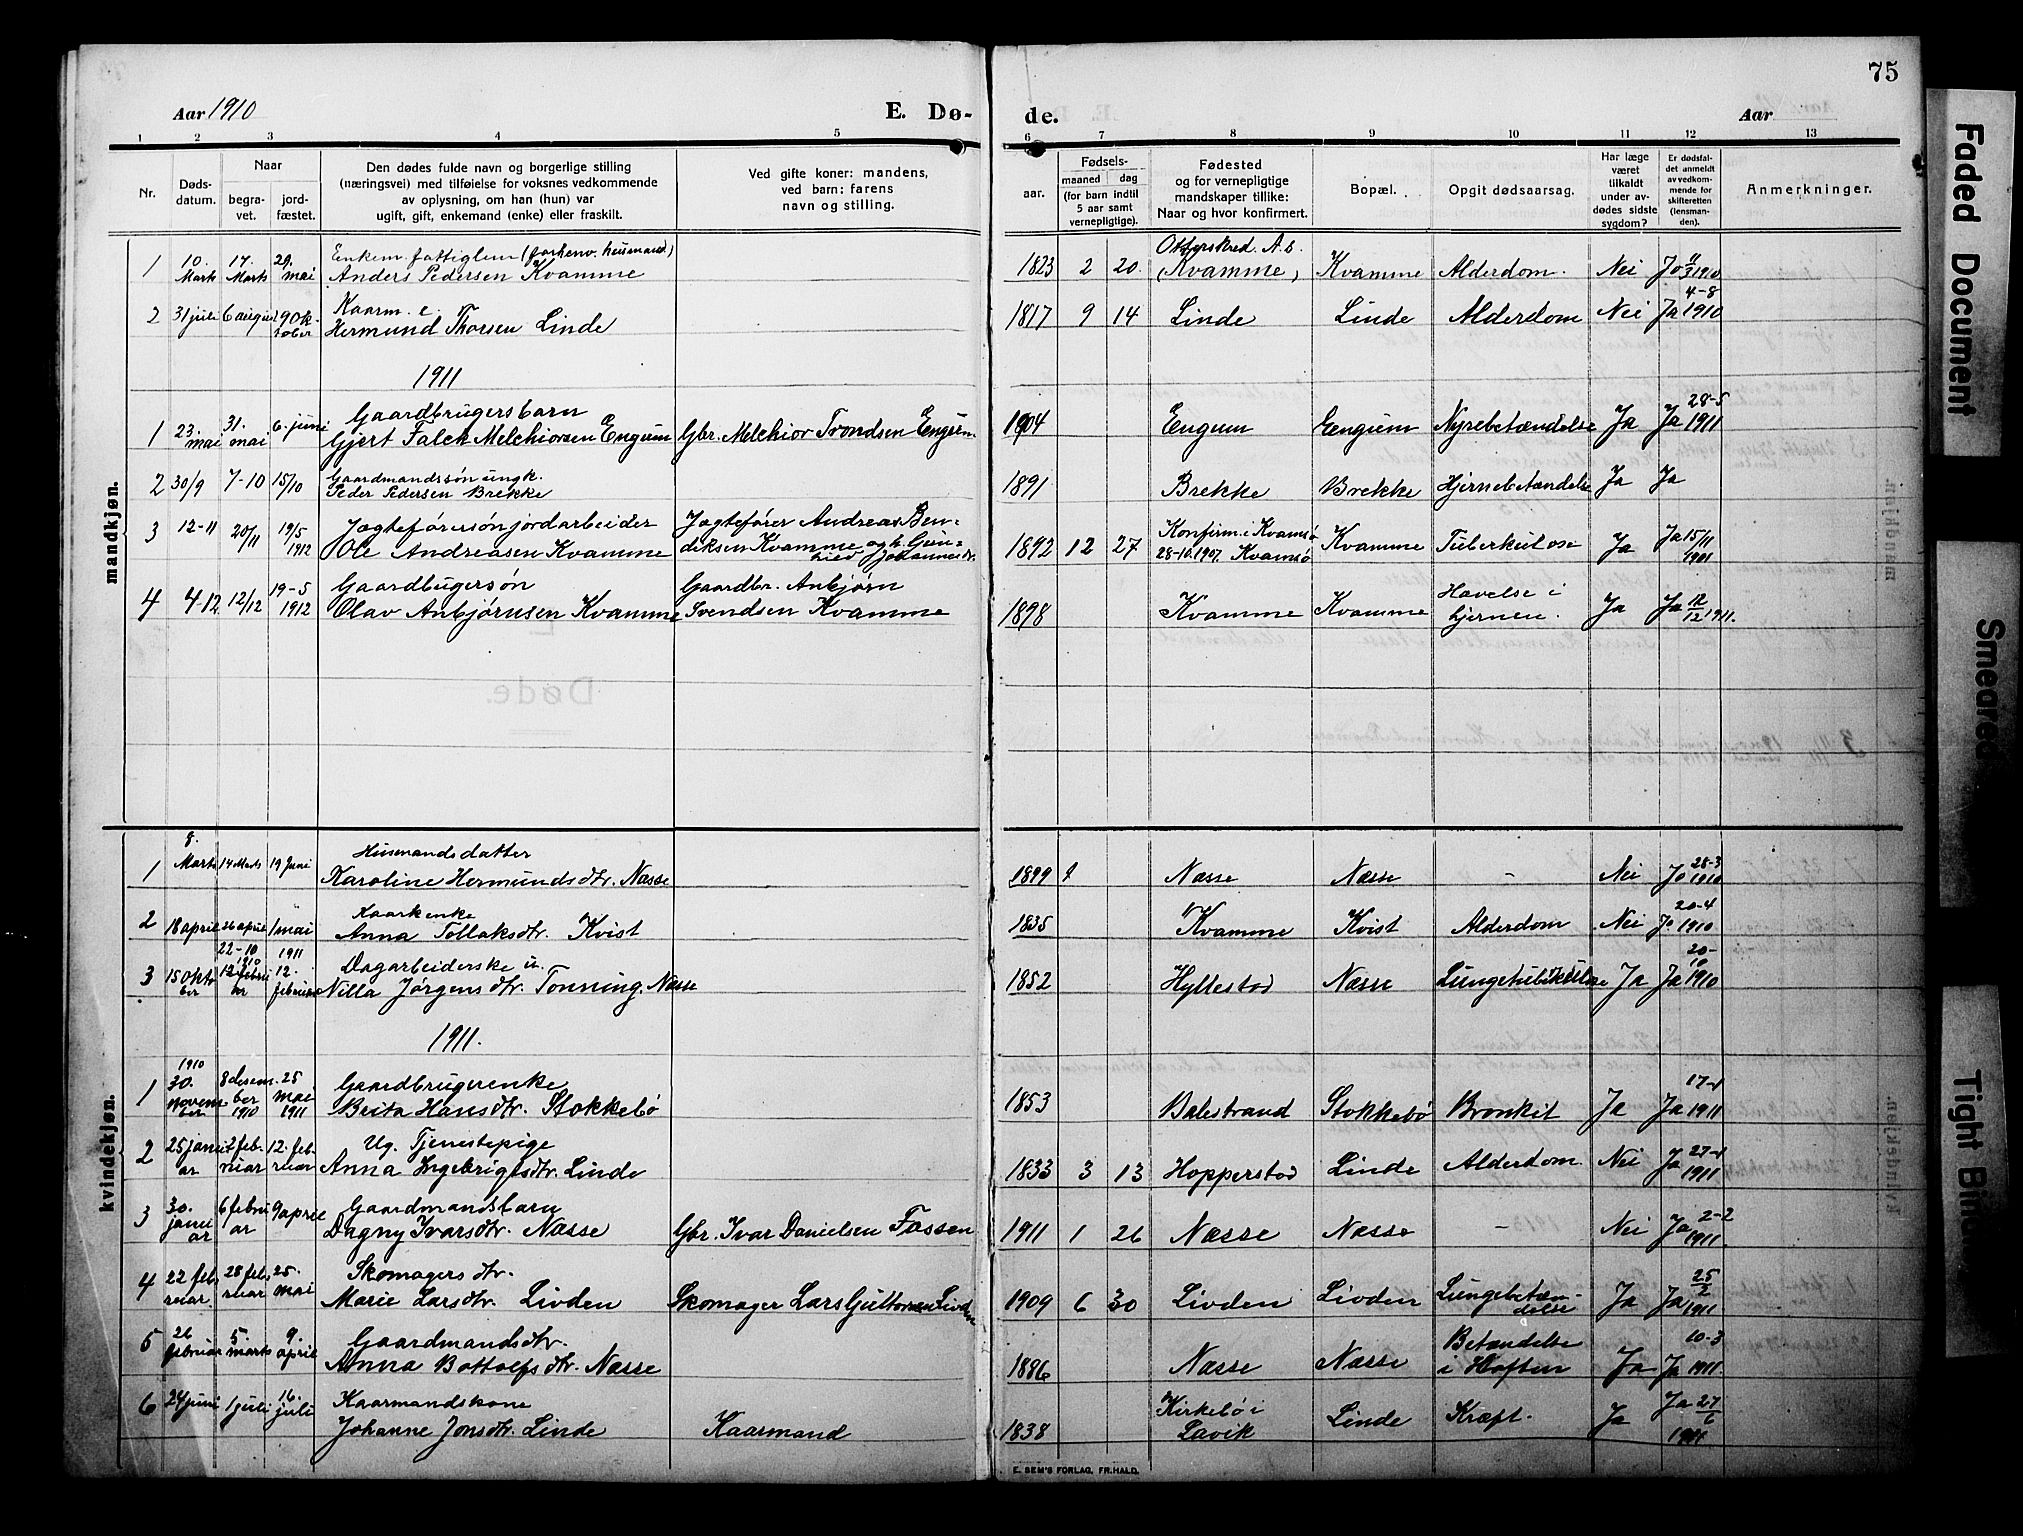 75
Aar 1910
E. Dø-
de.
Aar
1 2 3 4 5 6 7 8 9 10 11 12 13
Nr.
Døds-
datum.
Naar
begra-
vet.
jord-
fæstet.
Den dødes fulde navn og borgerlige stilling
(næringsvei) med tilføielse for voksnes vedkommende
av oplysning, om han (hun) var
ugift, gift, enkemand (enke) eller fraskilt.
Ved gifte koner: mandens,
ved barn: farens
navn og stilling.
Fødsels-
aar.
maaned
dag
(for barn indtil
5 aar samt
vernepligtige).
Fødested
og for vernepligtige
mandskaper tillike:
Naar og hvor konfirmert.
Bopæl.
Opgit dødsaarsag.
Har læge
været
tilkaldt
under av-
dødes sidste
sygdom?
Er dødsfal-
det anmeldt
av vedkom-
mende for
skifteretten
(lensman-
den).
Anmerkninger.
mandkjøn.
1 10. Marts 17. Marts 29. mai Enkem. fattiglem (forhenv. husmand)
Anders Pedersen Kvamme 1823 2 20. (Kvamme) Kvamme Alderdom. Nei Ja 11/3 1910
2 31 juli 6 august 9 Oktober Kaarm. e.
Hermund Thorsen Linde 1817 9 14 Linde Linde Alderdom Nei Ja 4-8 1910
1911
1 23. mai 31. mai 6. juni Gaardbrugersbarn
Gjert Falck Melchiorsen Engum Gbr. Melchior Trondsen Engum 1904 Engum Engum Nyrebetændelse Ja Ja 28-5 1911
2 30/9 7-10 15/10 Gaardmandssøn ungk.
Peder Pedersen Brekke 1891 Brekke Brekke Hjernebetændelse Ja Ja
3 12-11 20/11 19/5 1912 Jægteførersøn jordarbeider
Ole Andreasen Kvamme Jægtefører Andreas Ben-
diksen Kvamme 1892 12 27 Konfirm. i Kvamsø
28-10.1907. Kvamsø Kvamme Tuberkulose Ja Ja 15/11 1901
4 4-12 12/12 19-5 1912 Gaardbugersøn
Olav Anbjørnsen Kvamme Gaardbr. Anbjørn
Svendsen Kvamme 1898 Kvamme Kvamme Hævelse i
hjernen. Ja Ja 12/12 1911.
kvindekjøn.
1 8. Marts 14 Marts 19 Juni Husmandsdatter
Karoline Hermundsdtr. Næsse 1899 Næsse Næsse - Nei Ja 28-3 1910
2 18 april 26 april 1 mai Kaarkenke
Anna Tollaksdtr. Kvist 1835 Kvamme Kvist Alderdom Nei Ja 20-4 1910
3 15 Oktober 22-10 1910 12 februar 1911 12. februar Dagarbeiderske u.
Nilla Jørgensdtr. Tonning, Næsse 1852 Hyllestad Næsse Lungetuberkulose Ja Ja 20-10 1910
1911.
1 1910 30. november 8 desember 1910 25 mai 1911 Gaardbrugerenke
Brita Hansdtr. Stokkebø 1853 Balestrand Stokkebø Bronkit Ja Ja 17-1 1911
2 25 januar 2 februar 12. februar Ug. Tjenestepige
Anna Ingebrigtsdtr. Linde 1833 3 13 Hopperstad Linde Alderdom Nei Ja 27-1 1911
3 30. januar 6 februar 9 april Gaardmandsbarn
Dagny Ivarsdtr. Næsse Gbr. Ivar Danielsen Fossen 1911 1 26 Næsse Næsse - Nei Ja 2-2 1911.
4 22 februar 28 februar 25. mai Skomagers dtr.
Marie Larsdtr. Livden Skomager Lars Guttormsen Livden 1909 6 30 Livden Livden Lungebetæn-
delse Ja Ja 25/2 1911
5 26 februar 5. marts 9. april Gaardmandsdtr.
Anna Bottolfsdtr. Næsse 1886 Næsse Næsse Betændelse
i Hoften Ja Ja 10-3 1911.
6 24 juni 1 juli 16. juli Kaarmandskone
Johanne Jonsdtr. Linde Kaarmand 1838 Kirkebø i
Lavik Linde Kræft. Ja Ja 27/6 1911
E. SEM'S FORLAG, FR.HALD.
Faded Document
Smeared
Tight Bin
Døde.